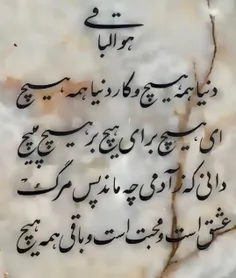 هوالباقی
دنیا همه هیچ و کار دنیا همه هیچ
ای هیچ برای هیچ بر هیچ مپیچ
دانی که ز آدمی چه ماند پس مرگ
عشق است و محبت است و باقی همه هیچ